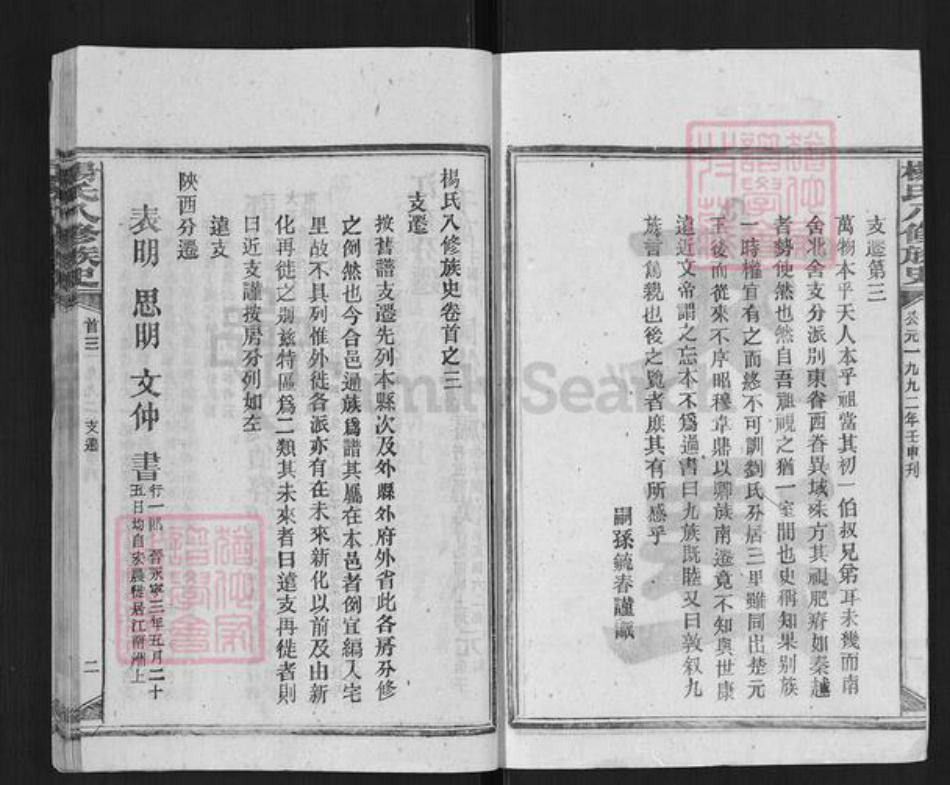 楊氏八修族史
公元一九九二年壬申刊
支遷第三
萬物本乎天人本乎祖當其初一伯叔兄弟耳未幾而南
舍北舍支分派別東省西眷異域殊方其視肥瘠如秦越
者勢使然也然自吾祖視之猶一室間也史稱知果別族
一時權宜有之而終不可訓劉氏分居三里雖同出楚元
王後而從來不序昭穆卓鼎以卿族南遷竟不知與世康
遠近文帝謂之忘本不為過書曰九族既睦又曰敦叙九
族言篤親也後之覽者庶其有所感乎
嗣孫毓春謹識
楊氏八修族史卷首之三
支遷
按舊譜支遷先列本縣次及外縣外府外省此各房分修
之例然也今合邑通族為譜其屬在本邑者例宜編入宅
里故不具列惟外徙各派亦有在未來新化以前及由新
化再徙之別茲特區為二類其未來者曰遠支再徙者則
曰近支謹按房分列如左
遠支
陝西分遷
表明 思明 文仲 書
行一郎 晉永寧三年五月二十
五日均自宏農徙居江南洲上
楊氏八修族史
首三
支遷
二
FamilySearch